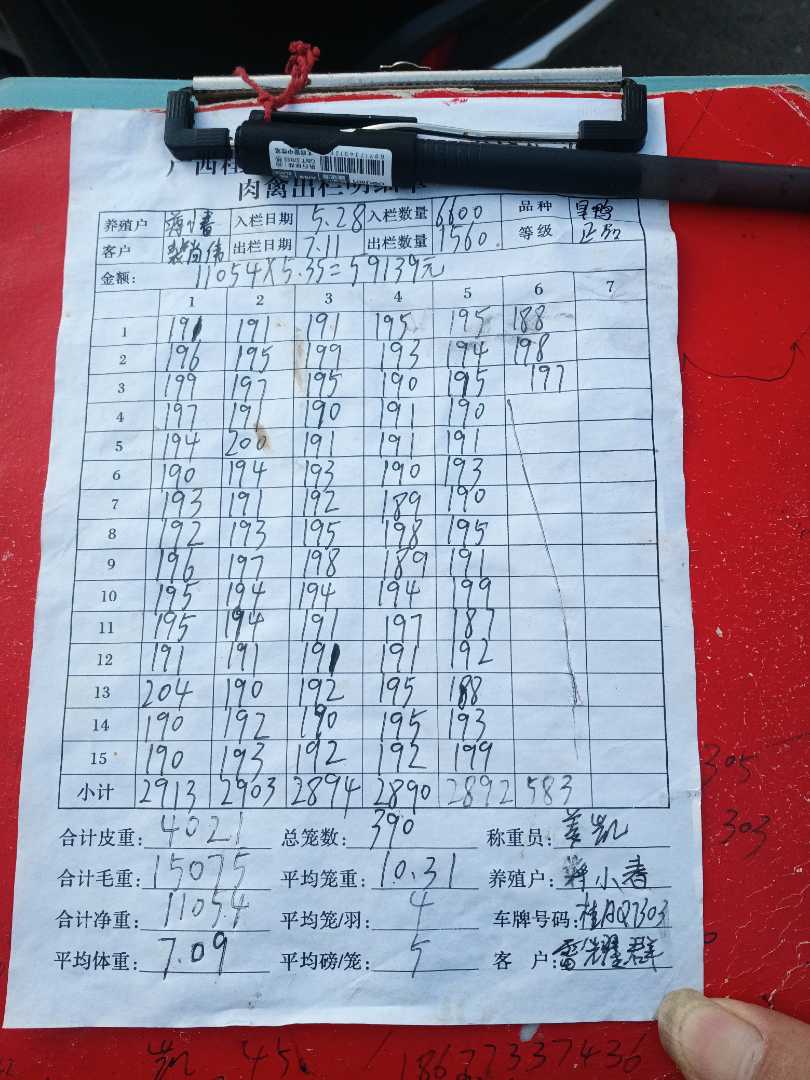 广西桂
肉禽出栏明细单
养殖户 蒋小春 入栏日期 5.28 入栏数量 6600 品种
客户 出栏日期 7.11 出栏数量 1560 等级 正品
金额: 11054×5.35=59139元
1 2 3 4 5 6 7
1 191 191 191 195 195 188
2 196 195 199 193 194 198
3 199 197 195 190 195 197
4 197 191 190 191 190
5 194 200 191 191 191
6 190 194 193 190 193
7 193 191 192 189 190
8 192 193 195 198 195
9 196 197 198 189 191
10 195 194 194 194 199
11 195 194 191 197 187
12 191 191 191 191 192
13 204 190 192 195 188
14 190 192 190 195 193
15 190 193 192 192 199
小计 2913 2903 2894 2890 2892 583
合计皮重: 4021 总笼数: 390 称重员: 姜凯
合计毛重: 15075 平均笼重: 10.31 养殖户: 蒋小春
合计净重: 11054 平均笼/羽: 4 车牌号码: 桂AQ7303
平均体重: 7.09 平均磅/笼: 5 客 户: 雷耀群
305
303
凯 45 18677337436